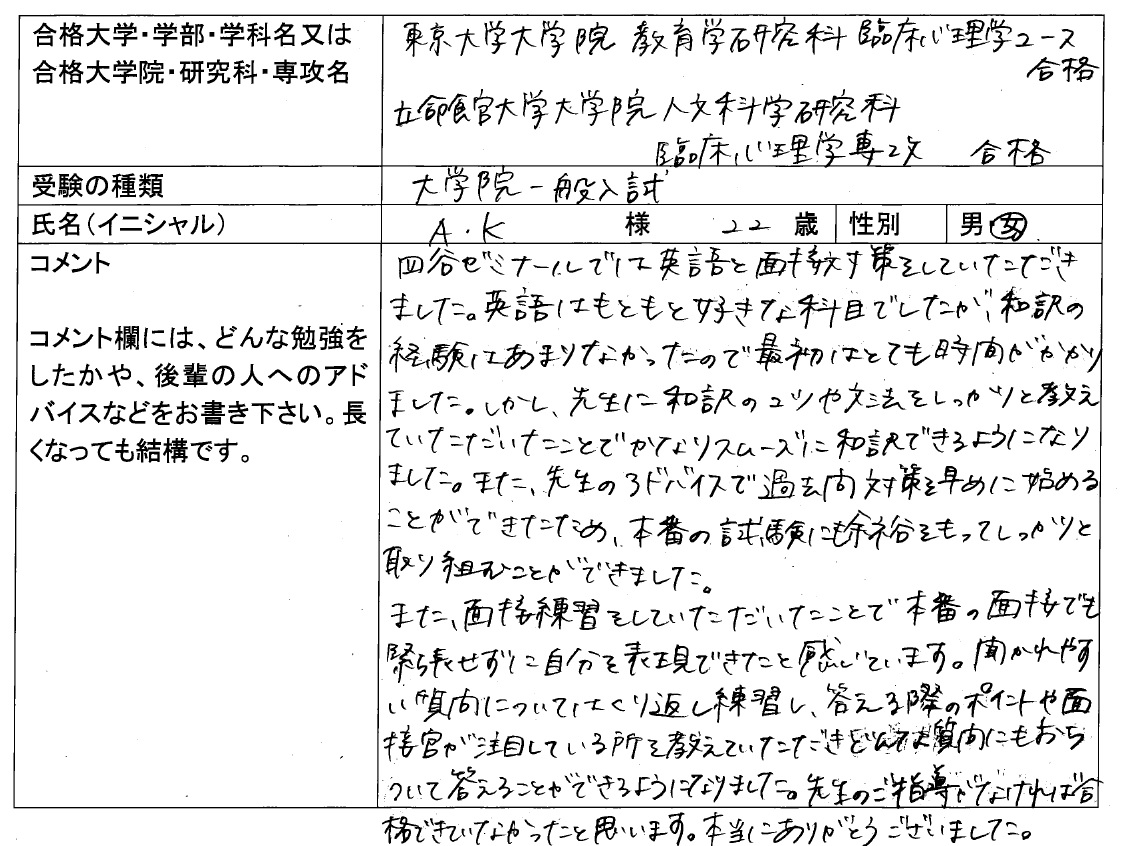 合格大学・学部・学科名又は
合格大学院・研究科・専攻名
東京大学大学院 教育学研究科 臨床心理学コース
合格
立命館大学大学院人文科学研究科
臨床心理学専攻 合格
受験の種類
大学院一般入試
氏名(イニシャル)
A・K 様 22 歳 性別 男・女
コメント
コメント欄には、どんな勉強を
したかや、後輩の人へのアド
バイスなどをお書き下さい。長
くなっても結構です。
四谷ゼミナールでは英語と面接対策をしていただき
ました。英語はもともと好きな科目でしたが、和訳の
経験はあまりなかったので最初はとても時間がかかり
ました。しかし、先生に和訳のコツや文法をしっかりと教え
ていただいたことでかなりスムーズに和訳できるようになり
ました。また、先生のアドバイスで過去問対策を早めに始める
ことができたため、本番の試験にも余裕をもってしっかりと
取り組むことができました。
また、面接練習をしていただいたことで本番の面接でも
緊張せずに自分を表現できたと感じています。聞かれやす
い質問についてはくり返し練習し、答える際のポイントや面
接官が注目している所を教えていただきどんな質問にもおち
ついて答えることができるようになりました。先生のご指導がなければ合
格できていなかったと思います。本当にありがとうございました。